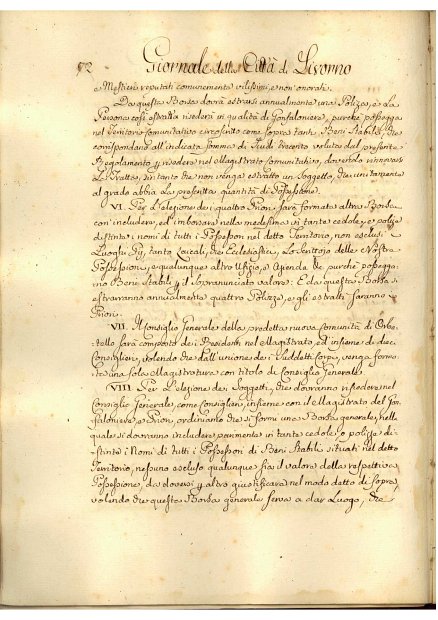 72 Giornale della Città di Livorno
e Mestieri reputati comunemente vilissimi, e non onorati.
Da questa Borsa dovrà estrarsi annualmente una Polizza, e la
Persona così estratta risederà in qualità di Gonfaloniere, purchè possegga
nel Territorio comunitativo circoscritto come sopra tanti Beni Stabili, che
corrispondano all'indicata somma di Scudi trecento voluta dal presente
Regolamento p. risedere nel Magistrato comunitativo, dovendosi rinnovare
la Tratta, fin tanto che non venga estratto un Soggetto, che
al grado abbia la prescritta quantità di Possessione.
VI. Per l'elezione dei quattro Priori sarà formata altra Borsa
con includere, ed imborsare nella medesima in tante cedole, o polizze
distinte i nomi di tutti i Possessori nel detto Territorio, non esclusi i
Luoghi Pij, tanto Laicali, che Ecclesiastici, lo Scrittojo delle Nostre
Possessioni, e qualunque altro Ufizio, e Azienda &c. purchè possegga-
no Beni Stabili p. il sopranunciato valore: E da questa Borsa si
estrarranno annualmente quattro Polizze, e gli estratti saranno
Priori.
VII. Il Consiglio Generale della predetta nuova Comunità di Orbe-
tello sarà composto dei Presidenti nel Magistrato, ed insieme di dieci
Consiglieri, volendo che dall'unione dei suddetti Corpi, venga forma-
ta una sola Magistratura con titolo di Consiglio Generale.
VIII. Per l'elezione dei Soggetti, che dovranno risedere nel
Consiglio Generale, come Consiglieri, insieme con il Magistrato del Gon-
faloniere, e Priori, ordiniamo che si formi una Borsa generale, nella
quale si dovranno includere parimente in tante cedole, o polizze di-
stinte i Nomi di tutti i Possessori di Beni Stabili situati nel detto
Territorio, nessuno escluso qualunque sia il valore della respettiva
Possessione, da doversi p. altro giustificare nel modo detto di sopra,
volendo che questa Borsa generale serva a dar Luogo, che